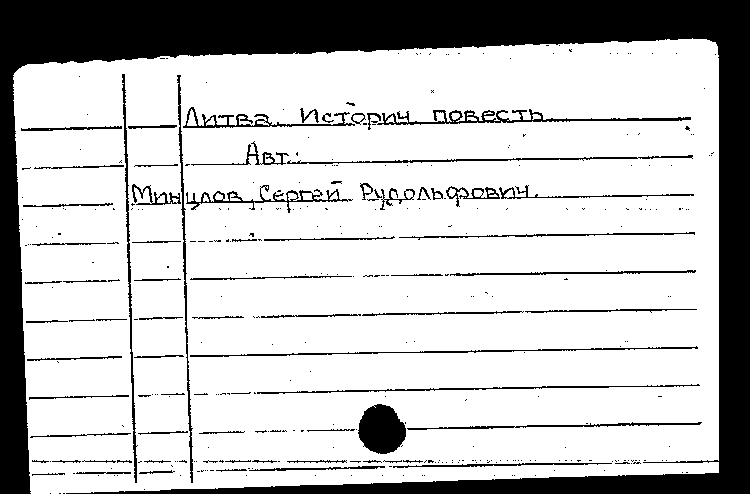 Литва. Историч повесть
Авт.:
Минцлов, Сергей Рудольфович.